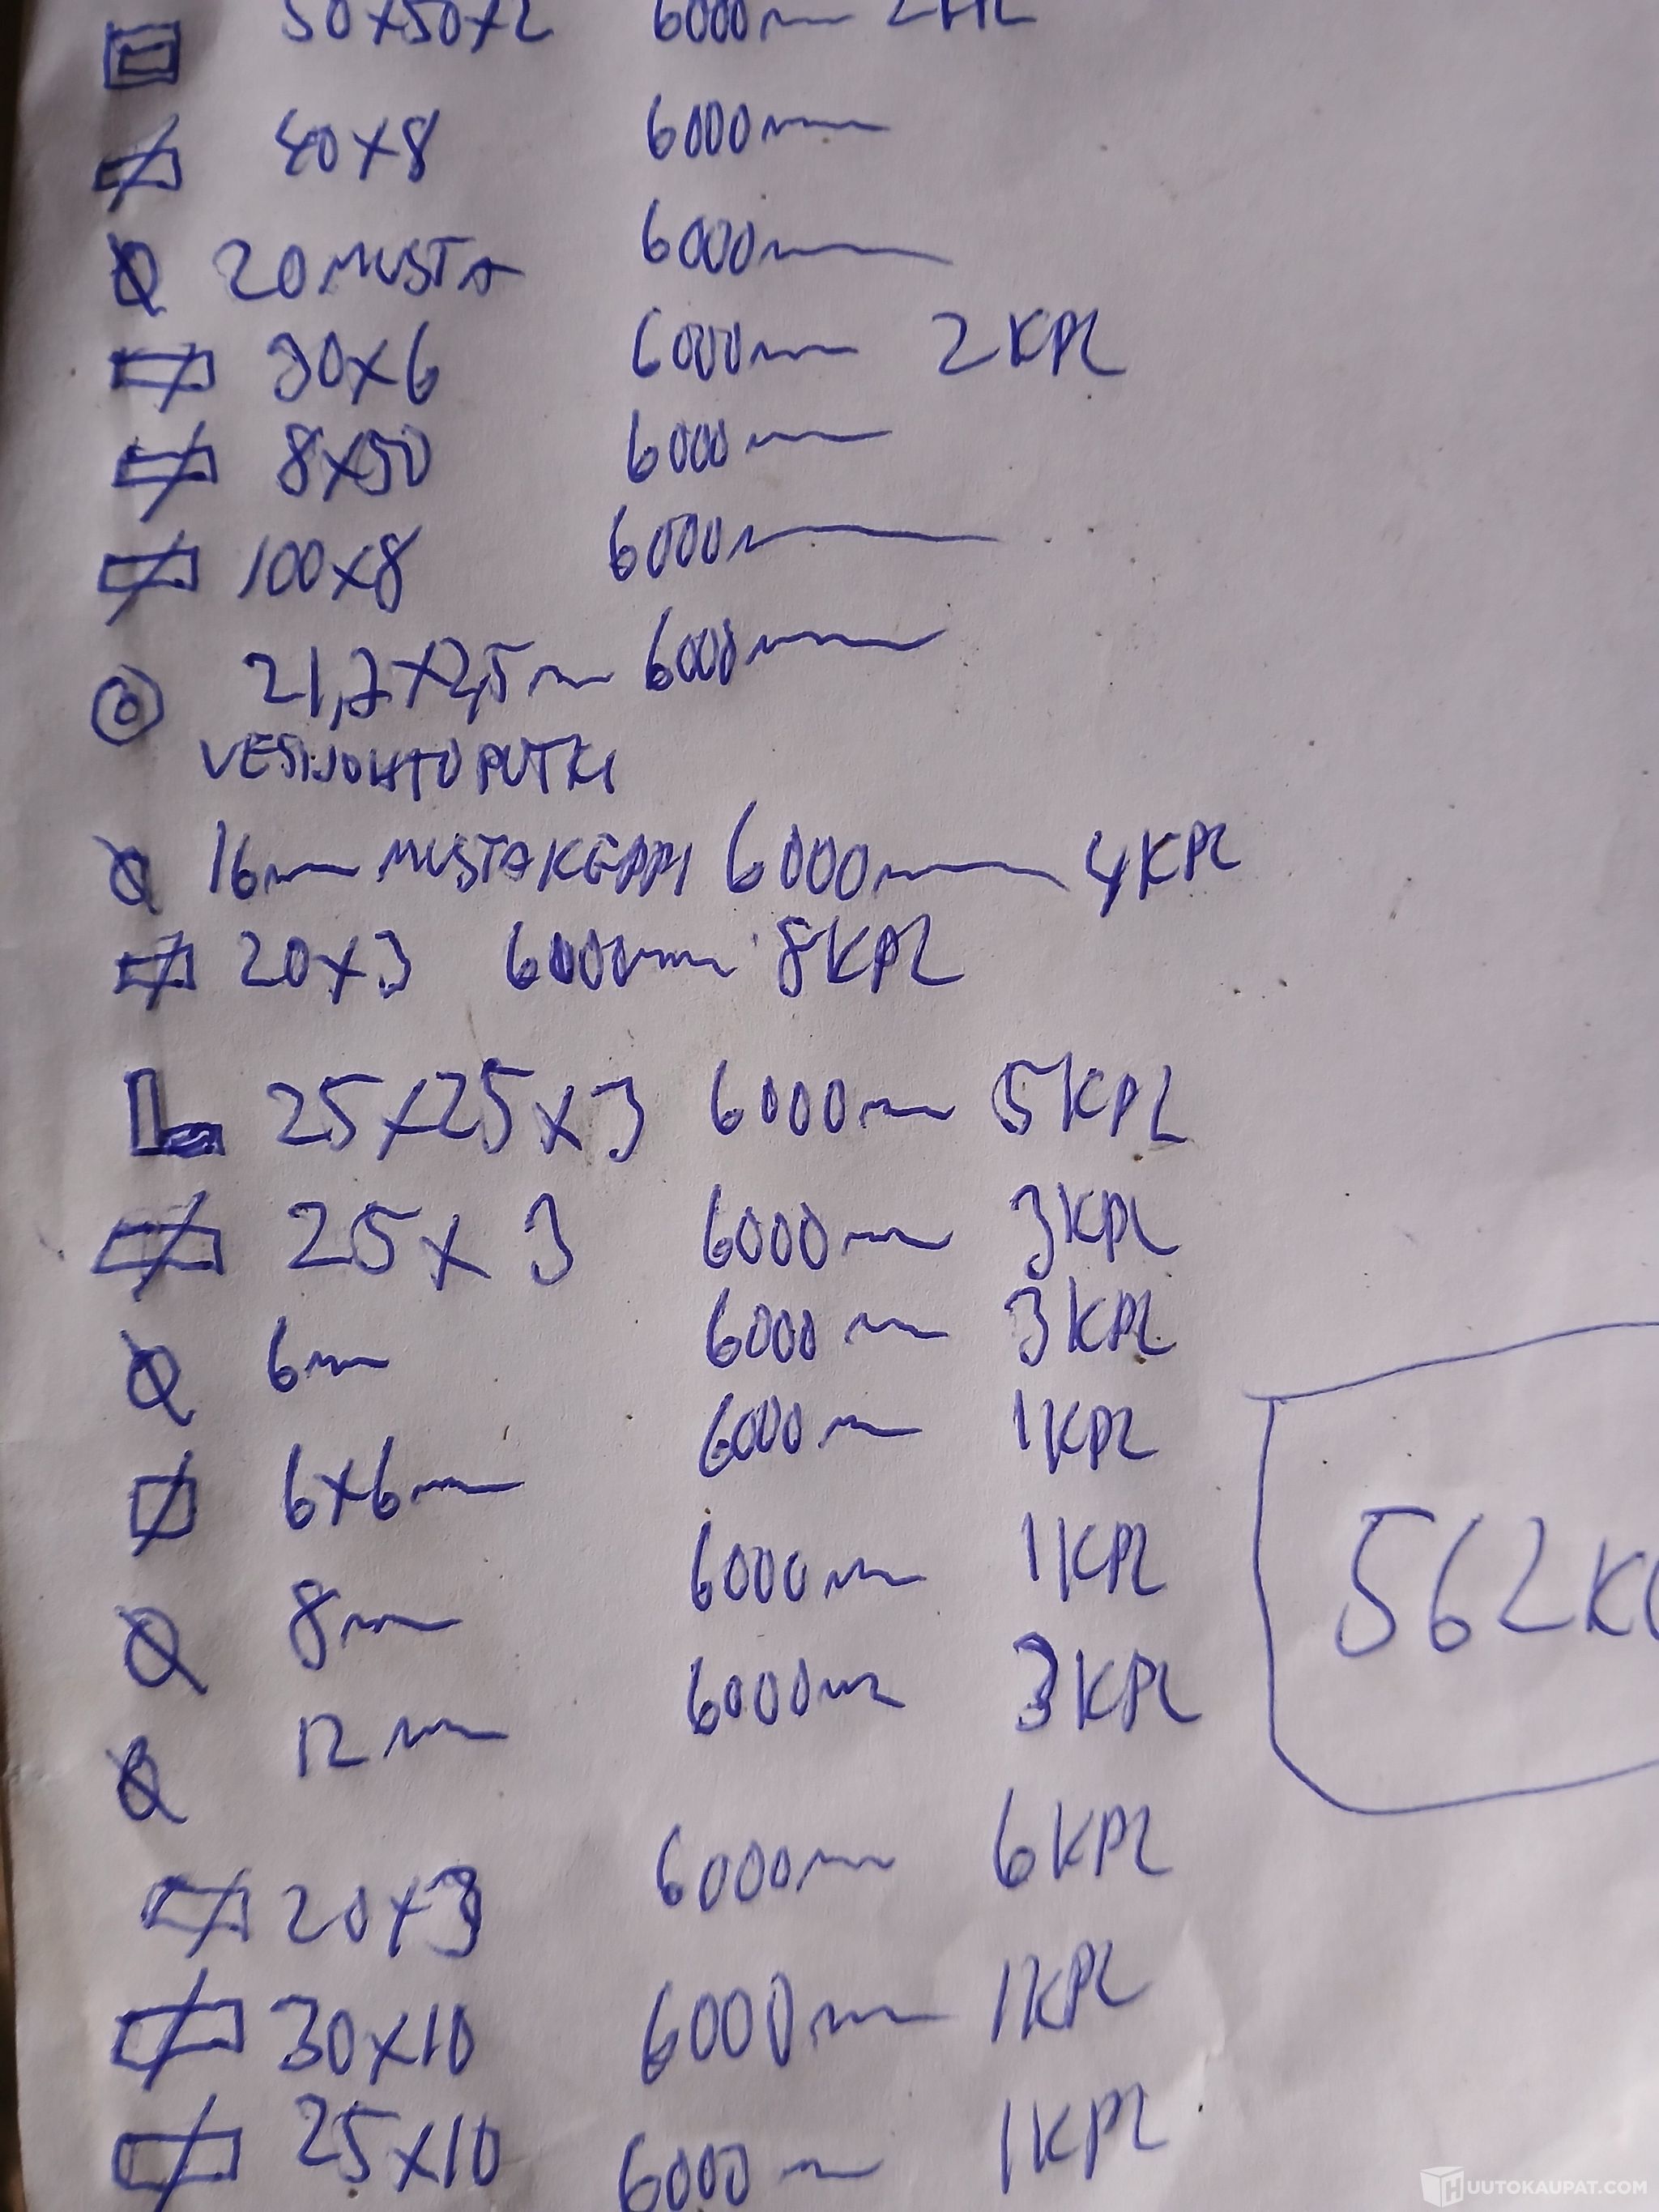 50x50x2 6000mm
40x8 6000mm
20 MUSTA 6000mm
30x6 6000mm 2KPL
8x50 6000mm
100x8 6000mm
21,2x2,5mm 6000mm
VESIJOHTOPUTKI
16mm MUSTAKEPPI 6000mm 4KPL
20x3 6000mm 8KPL
25x25x3 6000mm 5KPL
25x3 6000mm 3KPL
6mm 6000mm 3KPL
6x6mm 6000mm 1KPL
8mm 6000mm 1KPL
12mm 6000mm 3KPL
562K
20x3 6000mm 6KPL
30x10 6000mm 1KPL
25x10 6000mm 1KPL
HUUTOKAUPAT.COM